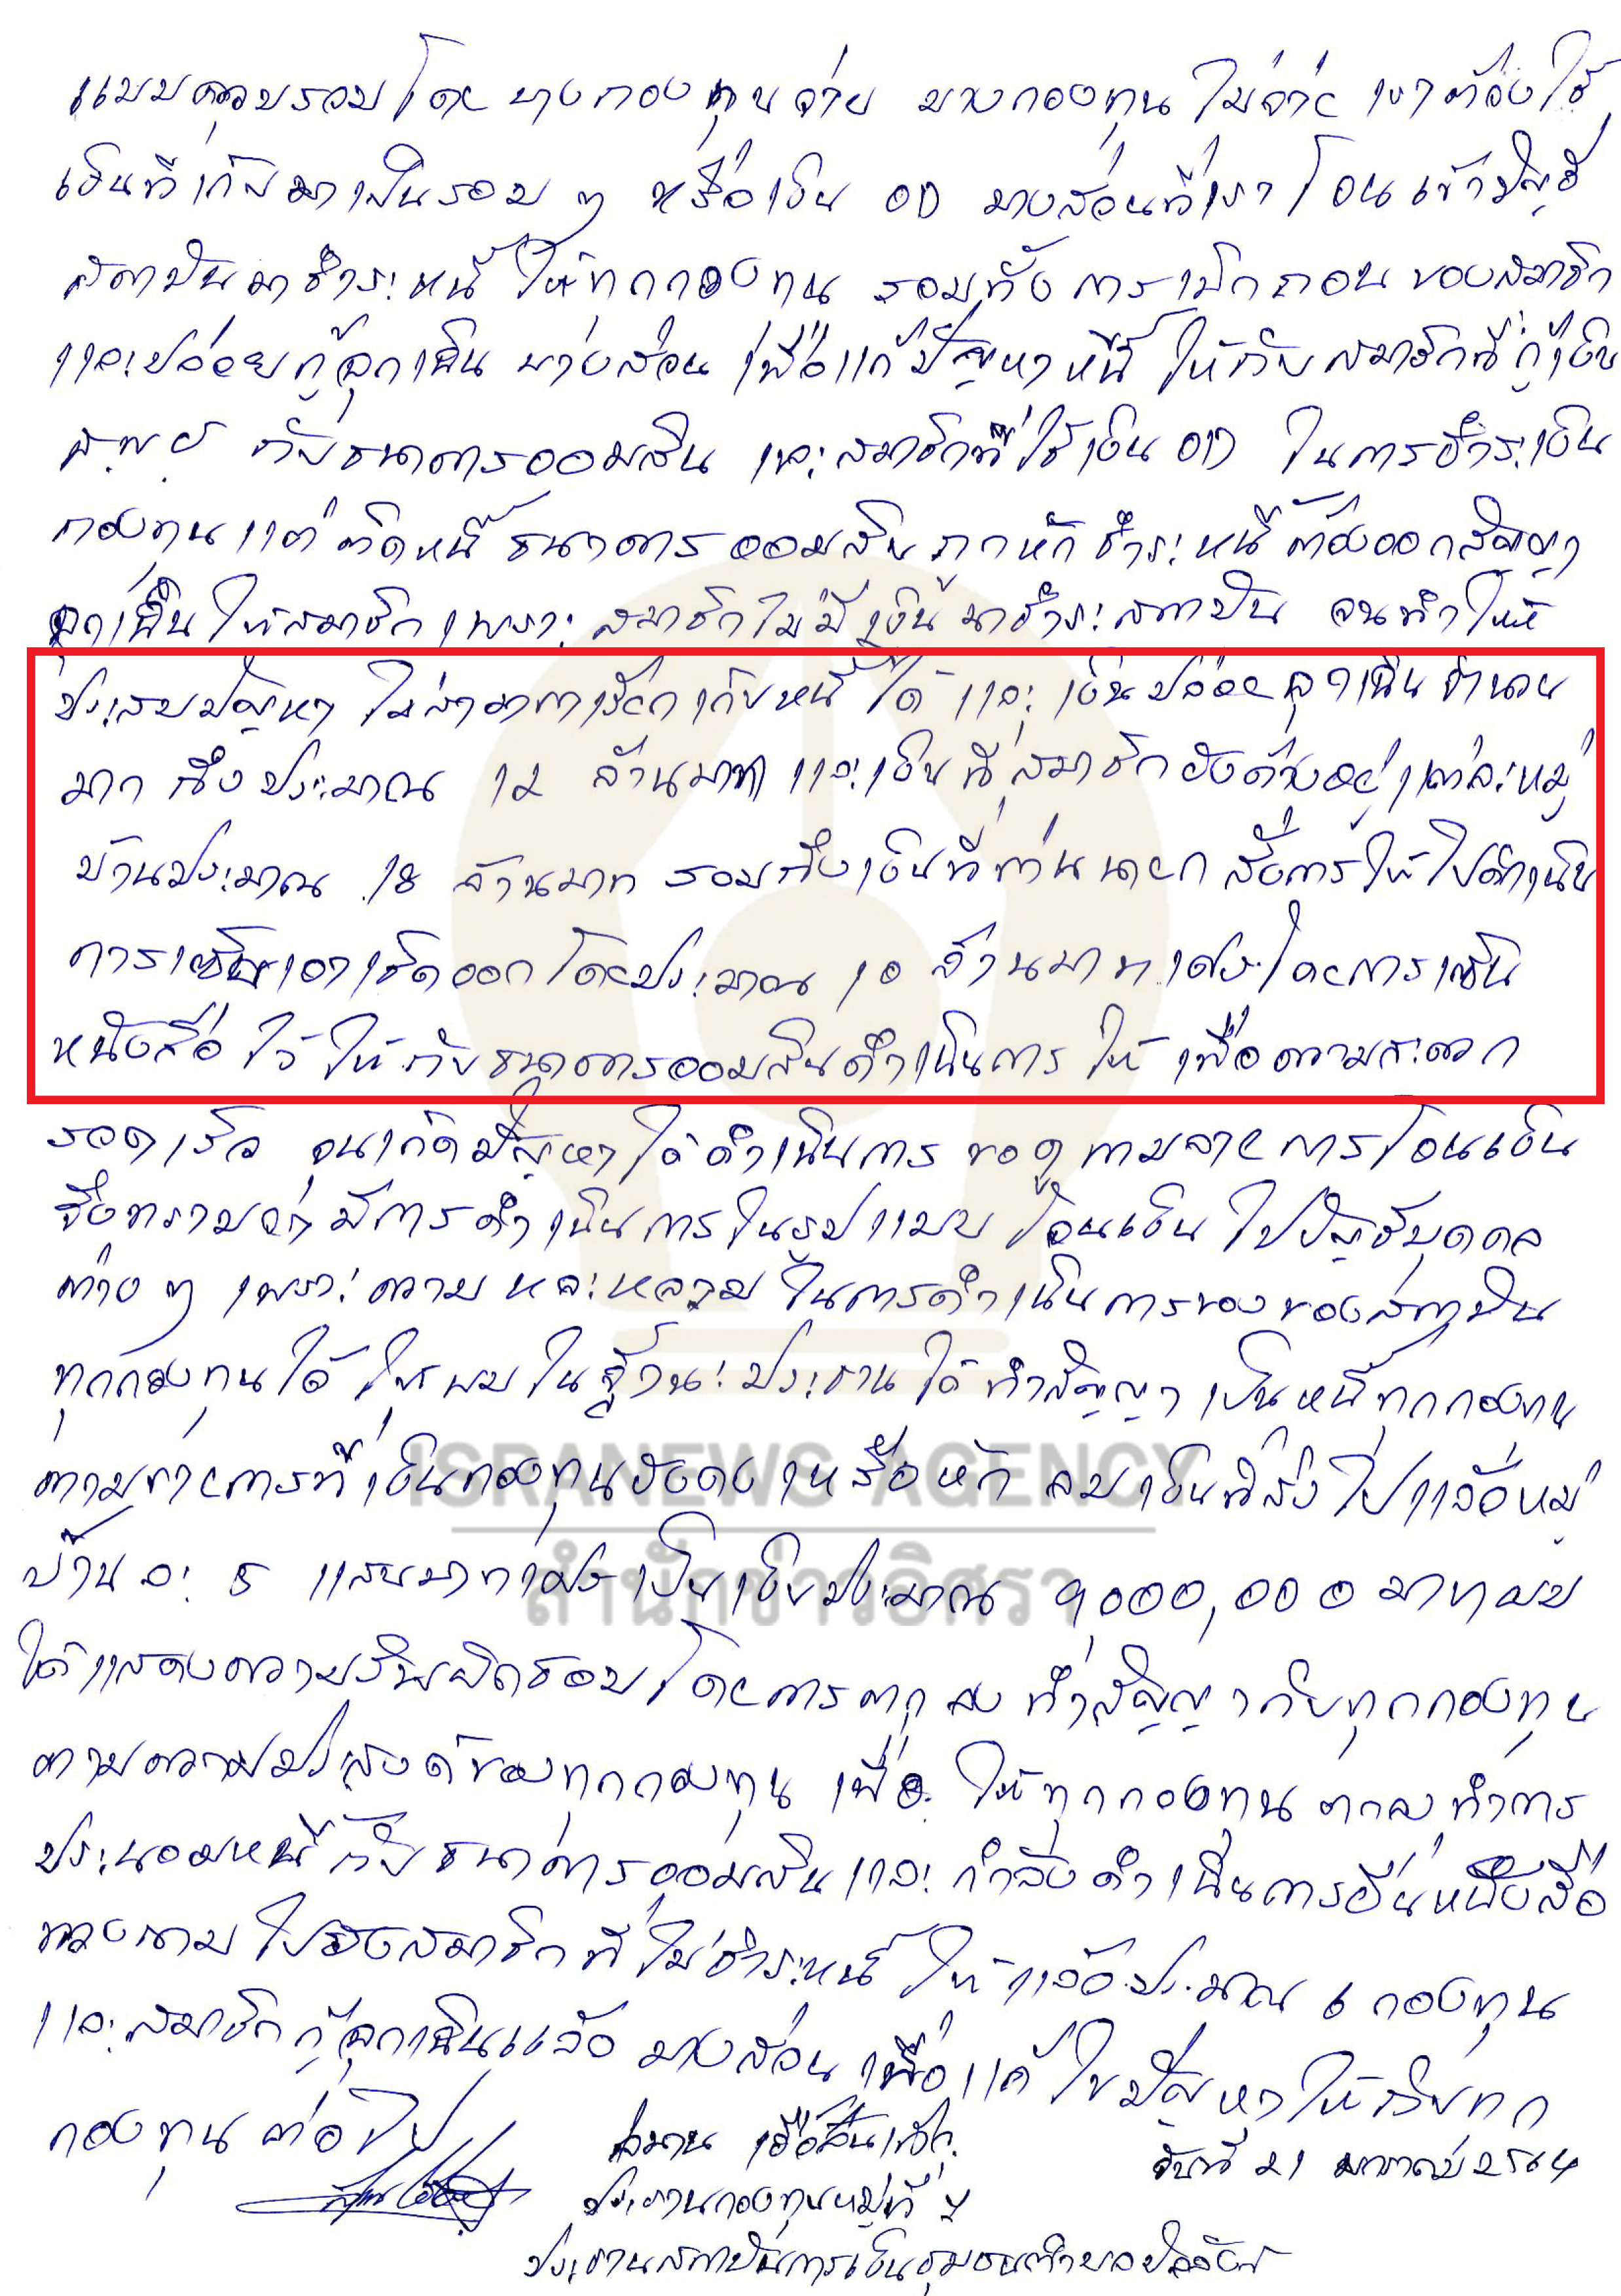 แบบควบรวมโดย บางกองทุนจ่าย บางกองทุน ไม่จ่าย เราต้องใช้
เงินที่เก็บมาเป็นรอบ ๆ หรือเงิน OD บางส่วนที่เราโอนเข้าบัญชี
สถาบันมาชำระหนี้ให้ทุกกองทุน รวมทั้งการเบิกถอนของสมาชิก
และปล่อยกู้ฉุกเฉิน บางส่วน เพื่อแก้ปัญหาหนี้ ให้กับสมาชิกที่กู้เงิน
กับธนาคารออมสิน และสมาชิกที่ใช้เงิน OD ในการชำระเงิน
กองทุน แต่ติดหนี้ธนาคารออมสิน ถูกหักชำระหนี้ ต้องออกสัญญา
ฉุกเฉินให้สมาชิก เพราะสมาชิกไม่มีเงินมาชำระสถาบัน จนทำให้
ประสบปัญหา ไม่สามารถเรียกเก็บหนี้ได้ และเงินปล่อยฉุกเฉินจำนวน
มาก ถึงประมาณ 12 ล้านบาท และเงินที่สมาชิกยังค้างอยู่แต่ละหมู่
บ้านประมาณ 18 ล้านบาท รวมถึงเงินที่ท่านนายก สั่งการให้ไปดำเนิน
การเซ็นเอาเชิดออกโดยประมาณ 10 ล้านบาทเศษ โดยการเซ็น
หนังสือไว้ให้กับธนาคารออมสินดำเนินการให้ เพื่อความสะดวก
รวดเร็ว จนเกิดปัญหาได้ดำเนินการ ขอดู การโอนเงิน
จึงทราบว่ามีการดำเนินการในรูปแบบ โอนเงินไปบัญชีบุคคล
ต่าง ๆ เพราะความหละหลวมในการดำเนินการของของสถาบัน
ทุกกองทุนได้ให้ผมในฐานะประธานได้ทำสัญญาเป็นหนี้ทุกกองทุน
ตามรายการที่เงินกองทุนยังคงเหลือหัก ลบเงินที่ส่งไปแล้วหมู่
บ้านละ 5 แสนบาทเศษ เป็นเงินประมาณ 9,000,000 บาท ผม
ได้แสดงความรับผิดชอบโดยการตกลงทำสัญญากับทุกกองทุน
ตามความประสงค์ของทุกกองทุน เพื่อให้ทุกกองทุนตกลงทำการ
ประนอมหนี้กับธนาคารออมสิน และกำลังดำเนินการยื่นหนังสือ
ทวงถามไปยังสมาชิกที่ไม่ชำระหนี้ให้แล้วประมาณ 6 กองทุน
และสมาชิกกู้ฉุกเฉินแล้ว บางส่วน เพื่อแก้ไขปัญหาให้กับทุก
กองทุนต่อไป
วันที่ 21 2564
ประธานกองทุนหมู่ที่
ประธานสถาบันการเงินชุมชนตำบล
ISRANEWS AGENCY
สำนักข่าวอิศรา